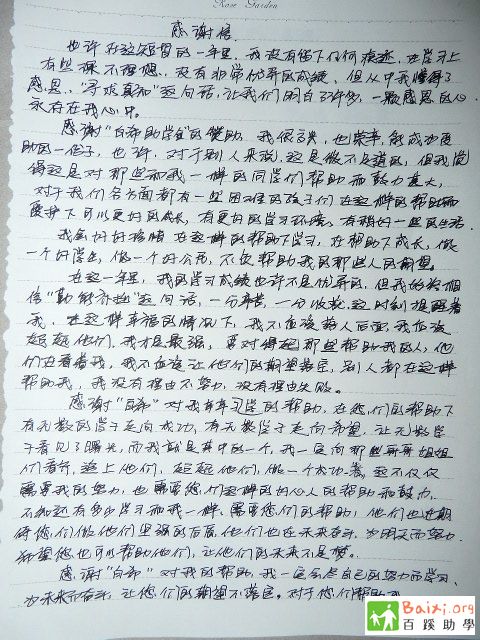 Rose Garden
感谢信
也许在这短暂的一年里，我没有留下任何痕迹，在学习上
有些很不理想，没有非常优异的成绩，但从中我懂得了
感恩，"寻求真知"这句话，让我们明白了许多，一颗感恩的心
永存在我心中。
感谢"百希助学会"的赞助，我很高兴，也荣幸，能成为受
助的一份子，也许，对于别人来说，这是微不足道的，但我觉
得这是对那些和我一样的同学们帮助和鼓力甚大，
对于我们各方面都有一些困难的孩子们在这样的帮助和
爱护下可以更好的成长，有更好的学习环境，有稍好一些的生活。
我会好好珍惜在这样的帮助下学习，在帮助下成长，做
一个好学生，做一个好公民，不负帮助我的那些人的期望。
在这一年里，我的学习成绩也许不是优异的，但我始终相
信"勤能补拙"这句话，一分辛苦，一分收获，这时刻提醒着
我，在这样幸福的情况下，我不应该落人后面，我应该
超越他们，我才是最强，要对得起那些帮助我的人，他
们在看着我，我不应该让他们的期望落空，别人都在这样
帮助我，我没有理由不努力，没有理由失败。
感谢"百希"对我有学习的帮助，在您们的帮助下
有无数的学子走向成功，有无数学子走向希望，让无数学
子看见了曙光，而我就是其中的一个，我一定向那些哥哥姐姐
们看齐，追上他们，超越他们，做一个成功者，这不仅仅
需要我的努力，也需要您们这样的好心人的帮助和鼓力，
不知还有多少学习和我一样，需要您们的帮助，他们也在期
待您们做他们坚强的后盾，他们也在未来奋斗，为明天而努力
希望您也可以帮助他们，让他们的未来不是梦。
感谢"百希"对我的帮助，我一定会尽自己的努力而学习，
为未来而奋斗，让您们的期望不落空。对于您们帮助我
Baixi.org
百蹊助學